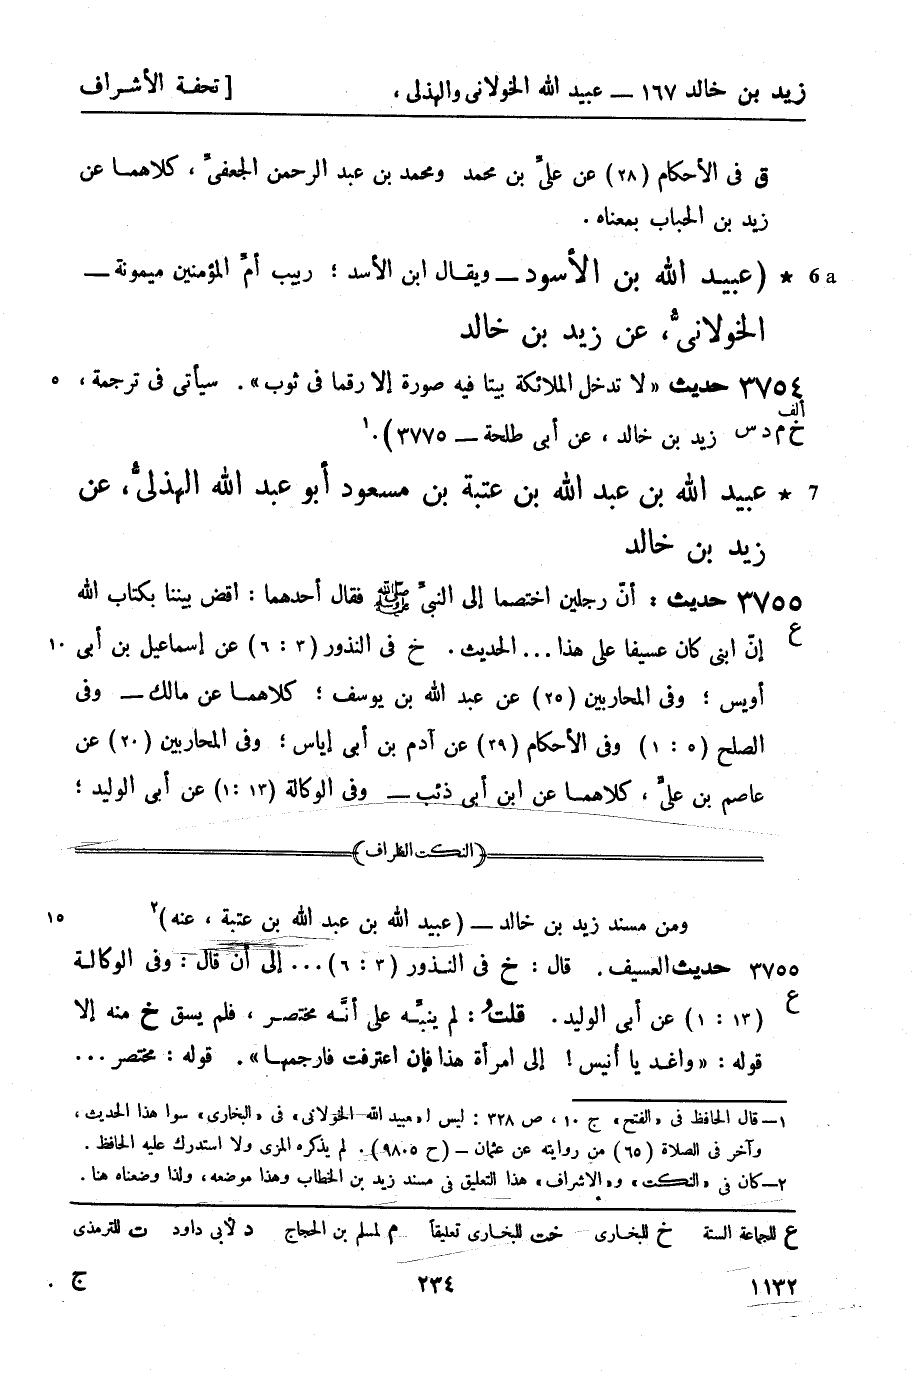 زيد بن خالد ١٦٧ ــ عبيد الله الخولانى والهذلى ، [ تحفة الأشراف
ق فى الأحكام (٢٨) عن علىّ بن محمد ومحمد بن عبد الرحمن الجعفىّ ، كلاهما عن
زيد بن الحباب بمعناه .
6 a ★ (عبيد الله بن الأسود ــ ويقال ابن الأسد ؛ ربيب أمّ المؤمنين ميمونة ــ
الخولانىّ، عن زيد بن خالد
٣٧٥٤ حديث «لا تدخل الملائكة بيتا فيه صورة إلا رقما فى ثوب» . سيأتى فى ترجمة ، ٥
ألف
خ م د س زيد بن خالد ، عن أبى طلحة ــ ٣٧٧٥) .١
7 ★ عبيد الله بن عبد الله بن عتبة بن مسعود أبو عبد الله الهذلىّ، عن
زيد بن خالد
٣٧٥٥ حديث : أنّ رجلين اختصما إلى النبىّ ﷺ فقال أحدهما : اقض بيننا بكتاب الله
ع إنّ ابنى كان عسيفا على هذا ... الحديث . خ فى النذور (٣ : ٦) عن إسماعيل بن أبى ١٠
أويس ؛ وفى المحاربين (٢٥) عن عبد الله بن يوسف ؛ كلاهما عن مالك ــ وفى
الصلح (٥ : ١) وفى الأحكام (٣٩) عن آدم بن أبى إياس ؛ وفى المحاربين (٢٠) عن
عاصم بن علىّ ، كلاهما عن ابن أبى ذئب ــ وفى الوكالة (١٣ : ١) عن أبى الوليد ؛
(النكت الظراف)
ومن مسند زيد بن خالد ــ (عبيد الله بن عبد الله بن عتبة ، عنه)٢ ١٥
٣٧٥٥ حديث العسيف . قال : خ فى النذور (٣ : ٦) ... إلى أن قال : وفى الوكالة
ع (١٣ : ١) عن أبى الوليد . قلتُ : لم ينبّه على أنّه مختصر ، فلم يسق خ منه إلا
قوله : «واغد يا أنيس ! إلى امرأة هذا فإن اعترفت فارجمها» . قوله : مختصر ...
١ــ قال الحافظ فى «الفتح» ج ١٠ ، ص ٣٢٨ : ليس لـ«عبيد الله الخولانى» فى «البخارى» سوا هذا الحديث ،
وآخر فى الصلاة (٦٥) من روايته عن عثمان ــ (ح ٩٨٠٥) . لم يذكره المزى ولا استدرك عليه الحافظ .
٢ــ كان فى «النكت» و«الإشراف» هذا التعليق فى مسند زيد بن الخطاب وهذا موضعه ، ولذا وضعناه هنا .
ع للجماعة الستة خ للبخارى خت للبخارى تعليقاً م لمسلم بن الحجاج د لأبى داود ت للترمذى
١١٣٢ ٢٣٤ ج .